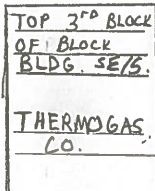 TOP 3RD BLOCK
OF BLOCK
BLDG. SE/S.
THERMOGAS
CO.